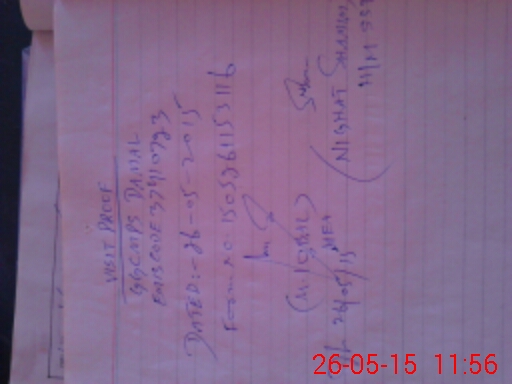 VISIT PROOF
GGCMPS DAMAL
EMISCODE 37410723
DATED:- 26-05-2015
Form No. 15052611153116
(M. IQBAL)
MEA
26/05/15
(NIGHAT SHAHEEN
26-05-15 11:56